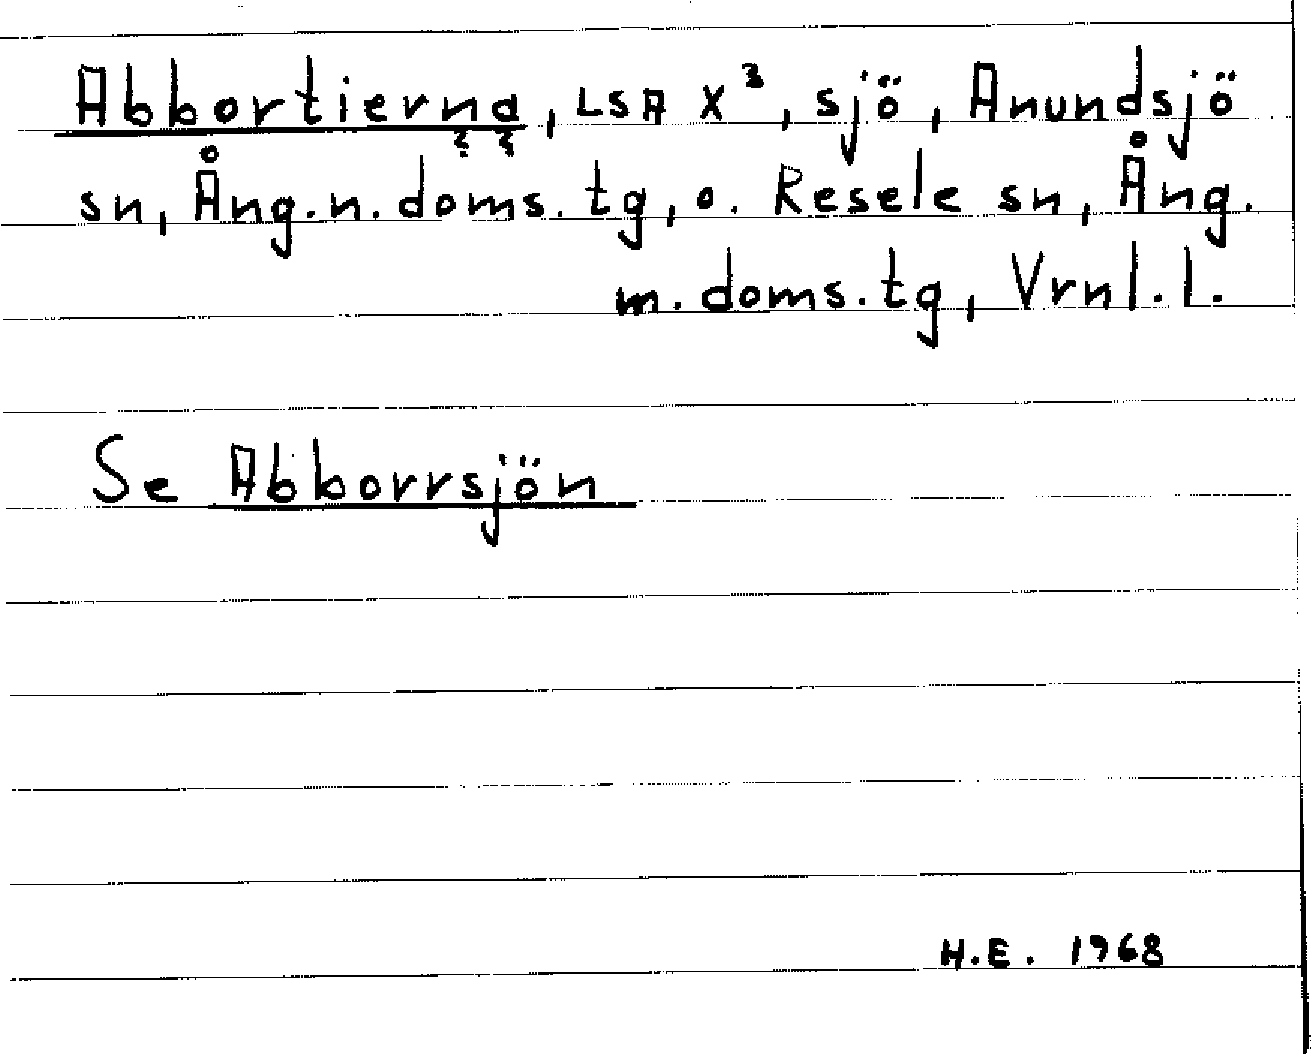 Abbortierna, LSA X³, sjö, Anundsjö
sn, Ång.n.doms.tg, o. Resele sn, Ång.
m.doms.tg, Vrnl.l.
Se Abborrsjön
H.E. 1968